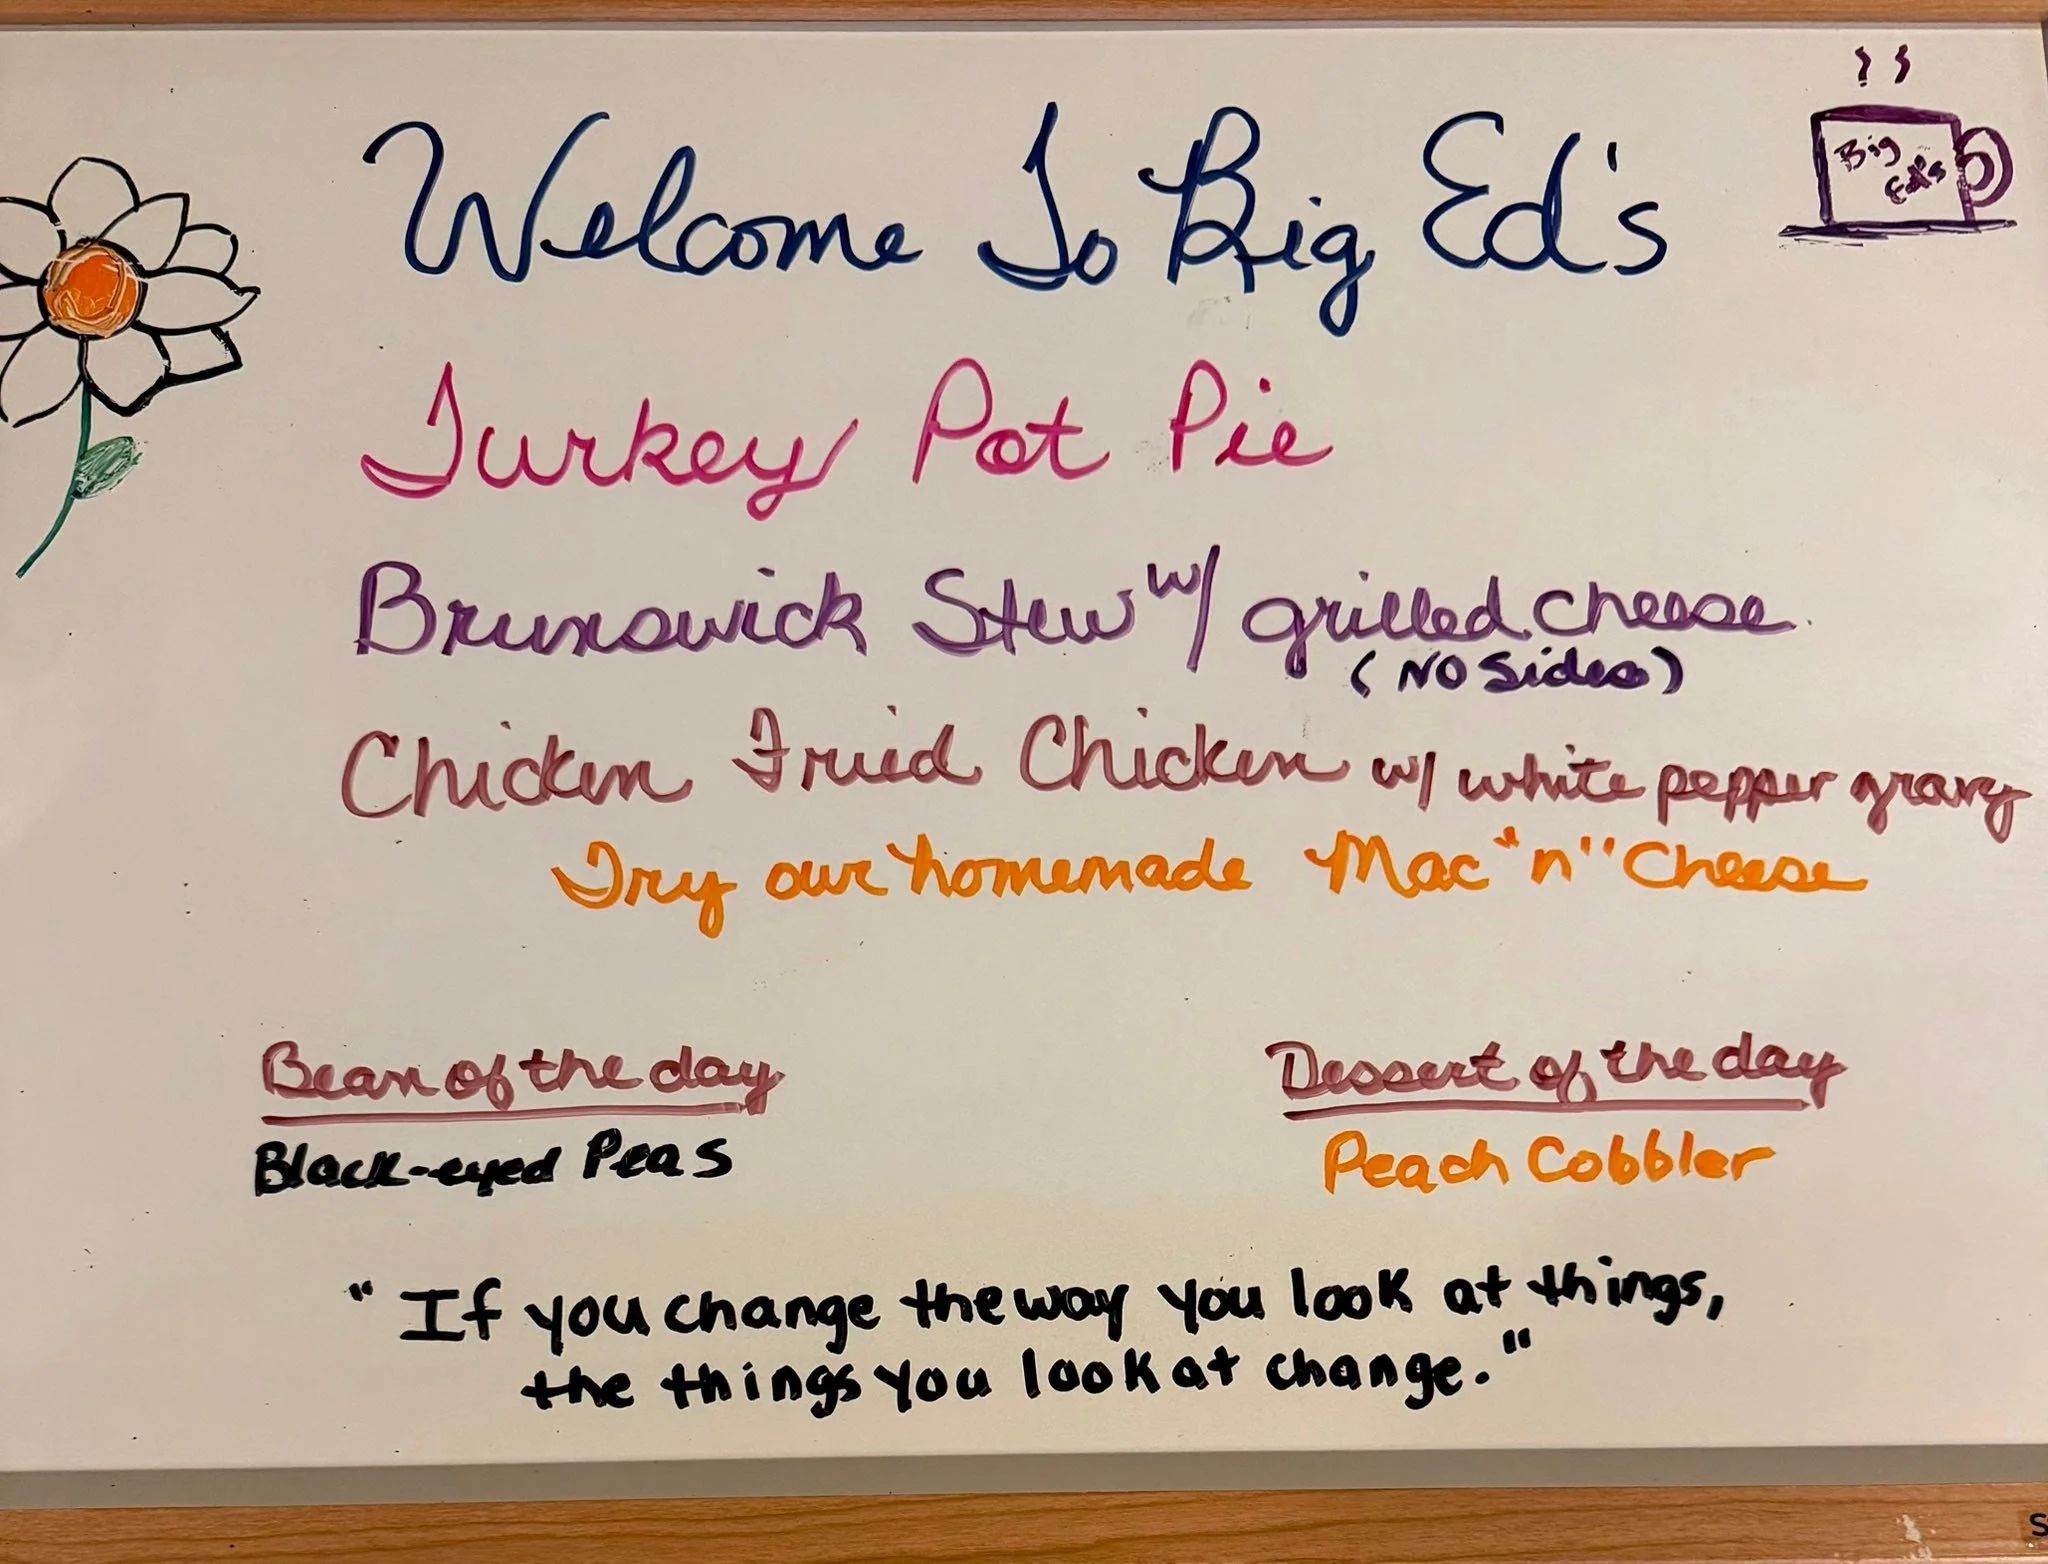 Welcome To Big Ed's
Big
Ed's
Turkey Pot Pie
Brunswick Stew w/ grilled cheese.
(No Sides)
Chicken Fried Chicken w/ white pepper gravy
Try our homemade Mac "n" Cheese
Bean of the day
Black-eyed Peas
Dessert of the day
Peach Cobbler
"If you change the way you look at things,
the things you look at change."